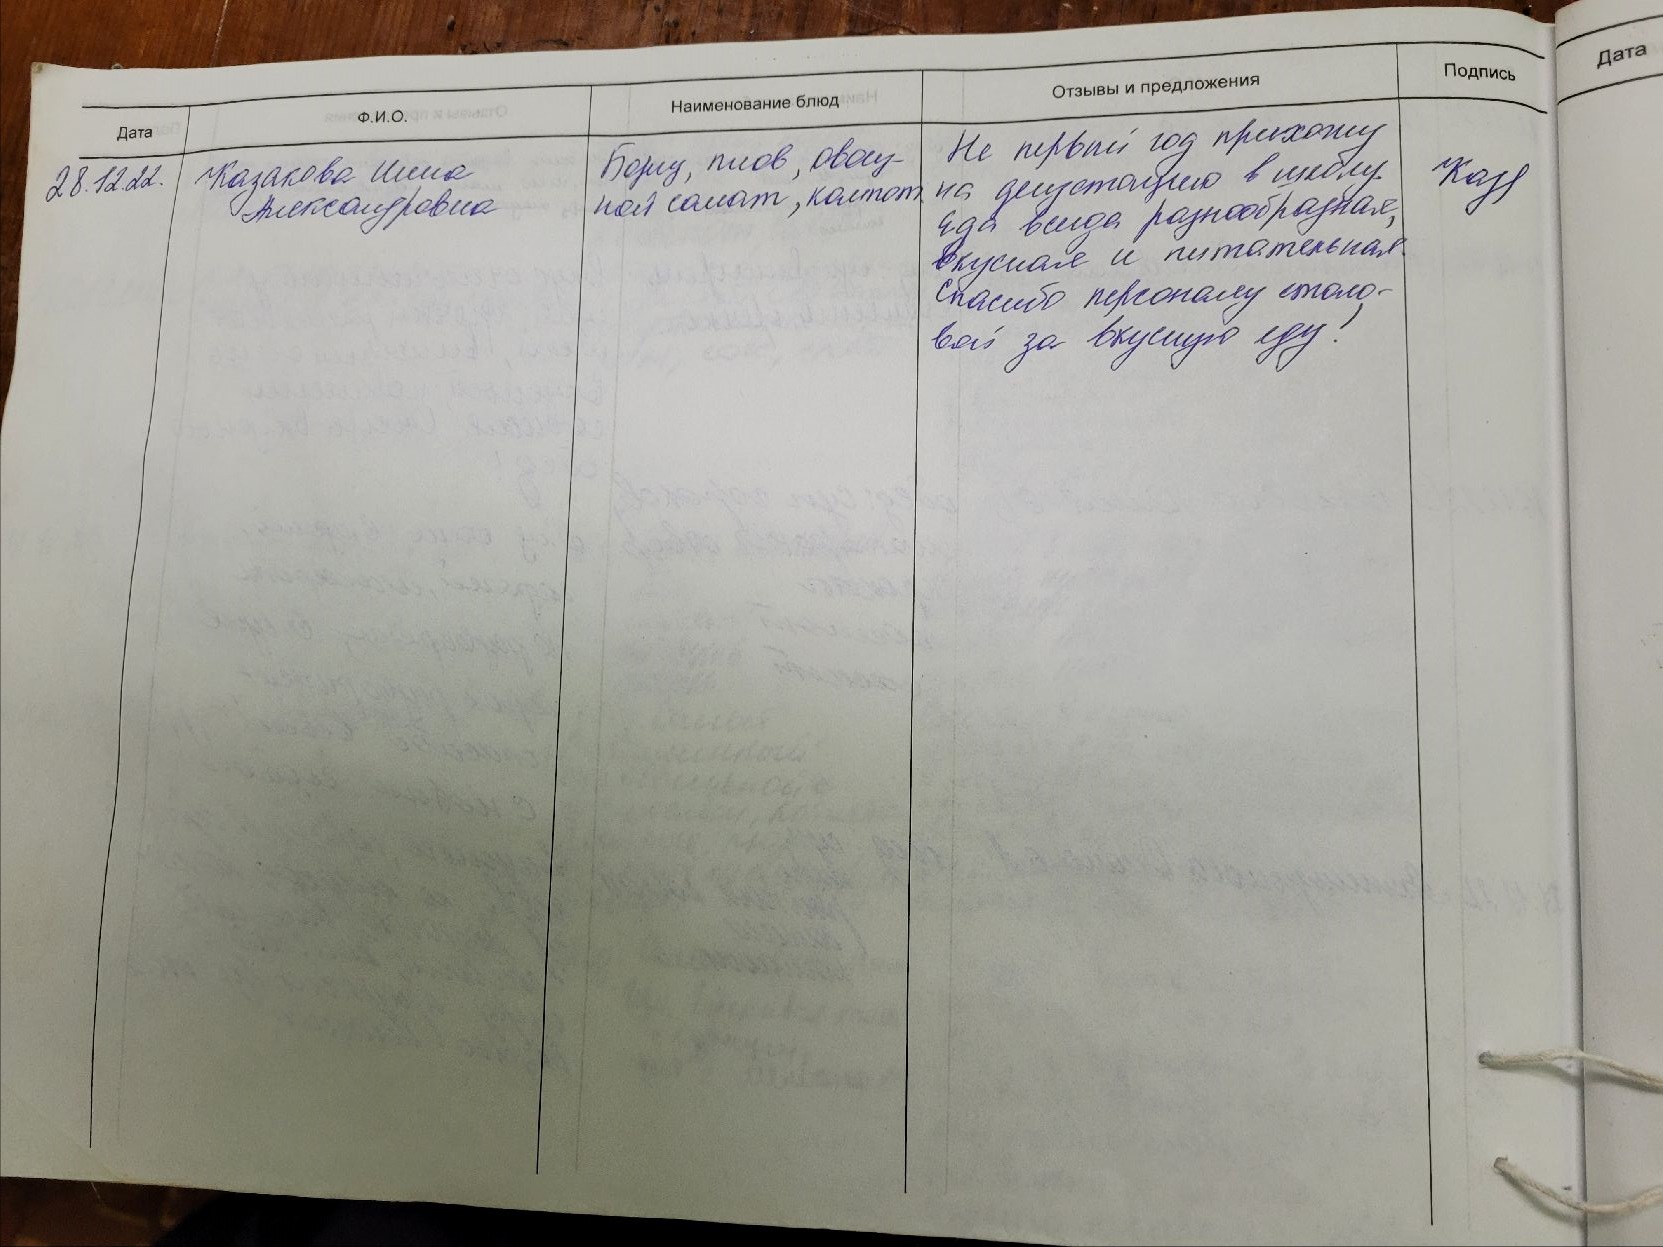 Дата Ф.И.О. Наименование блюд Отзывы и предложения Подпись
Дата
28.12.22.
Казакова Инна
Александровна
Борщ, плов, овощ-
ной салат, компот
Не первый год прихожу
на дегустацию в школу.
Еда всегда разнообразная,
вкусная и питательная.
Спасибо персоналу столо-
вой за вкусную еду!
Каз